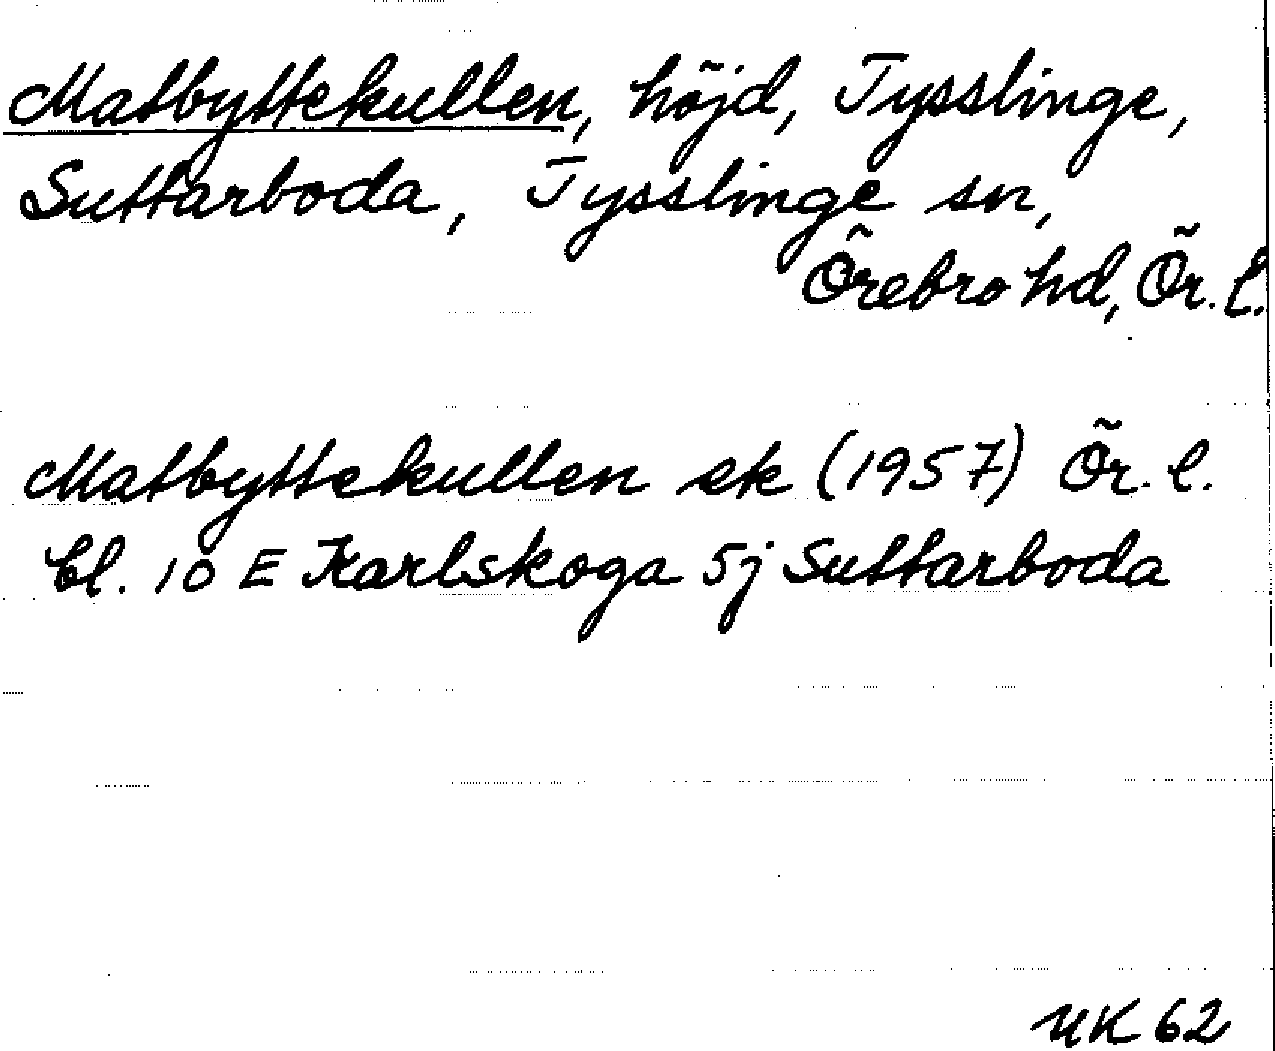 Matbyttekullen, höjd, Tysslinge,
Suttarboda, Tysslinge sn,
Örebro hd, Ör. l.
Matbyttekullen ek (1957) Ör. l.
bl. 10 E Karlskoga 5j Suttarboda
UK 62